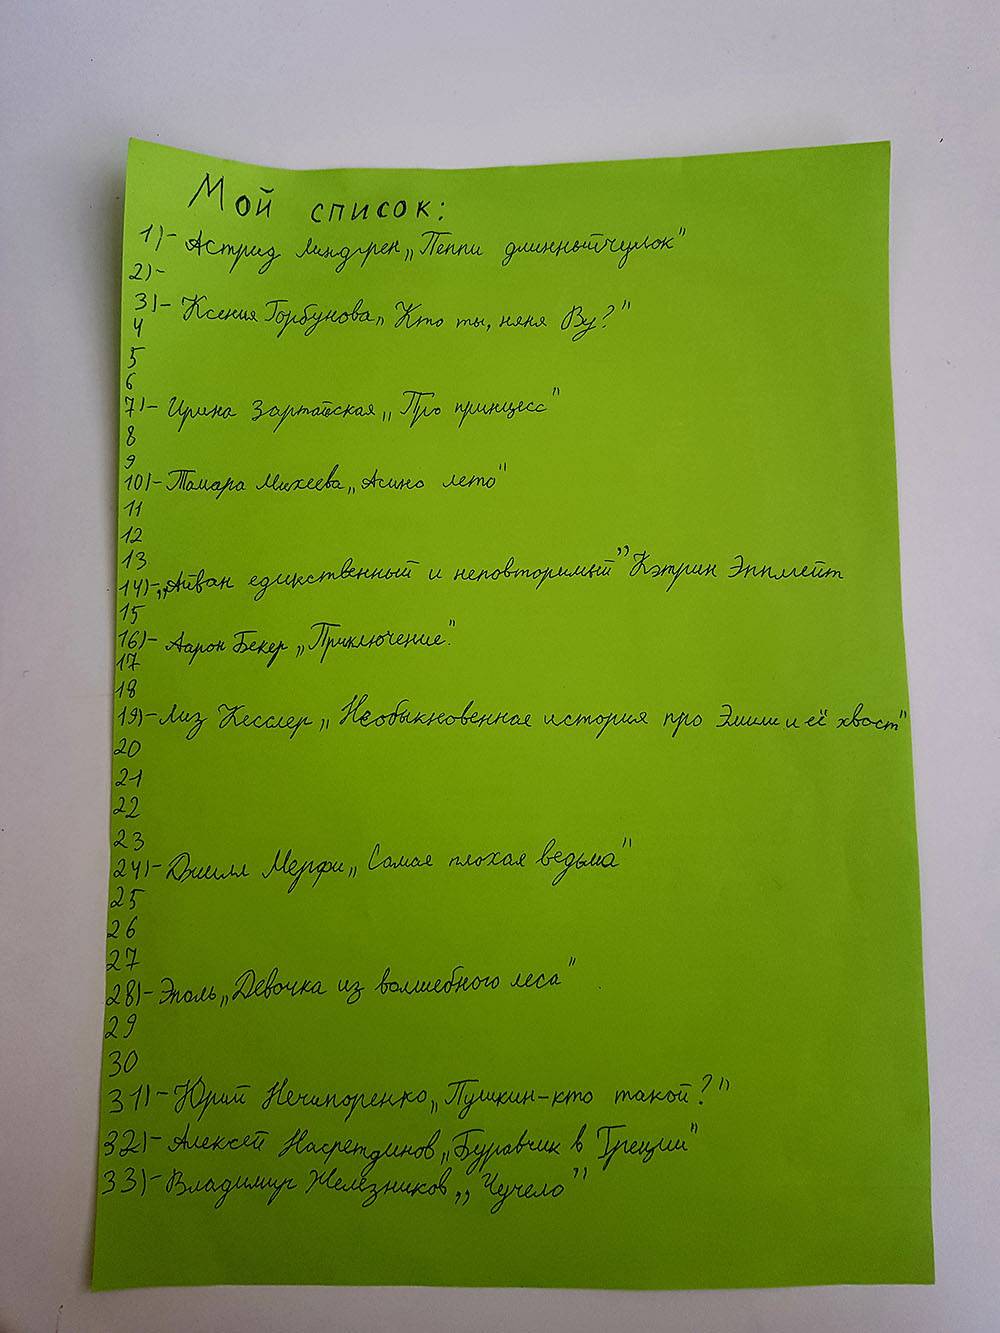 Мой список:
1)- Астрид Линдгрен „Пеппи длинныйчулок"
2)-
3)- Ксения Горбунова „Кто ты, няня Ву?"
4
5
6
7)- Ирина Зартайская „Про принцесс"
8
9
10)- Тамара Михеева „Асино лето"
11
12
13
14)- „Айван единственный и неповторимый" Кэтрин Эпплгейт
15
16)- Аарон Бекер „Приключение".
17
18
19)- Лиз Кесслер „Необыкновенная история про Эмили и её хвост"
20
21
22
23
24)- Джилл Мерфи „Самая плохая ведьма"
25
26
27
28)- Эполь „Девочка из волшебного леса"
29
30
31)- Юрий Нечипоренко „Пушкин-кто такой?"
32)- Алексей Насретдинов „Буравчик в Греции"
33)- Владимир Железников „Чучело"